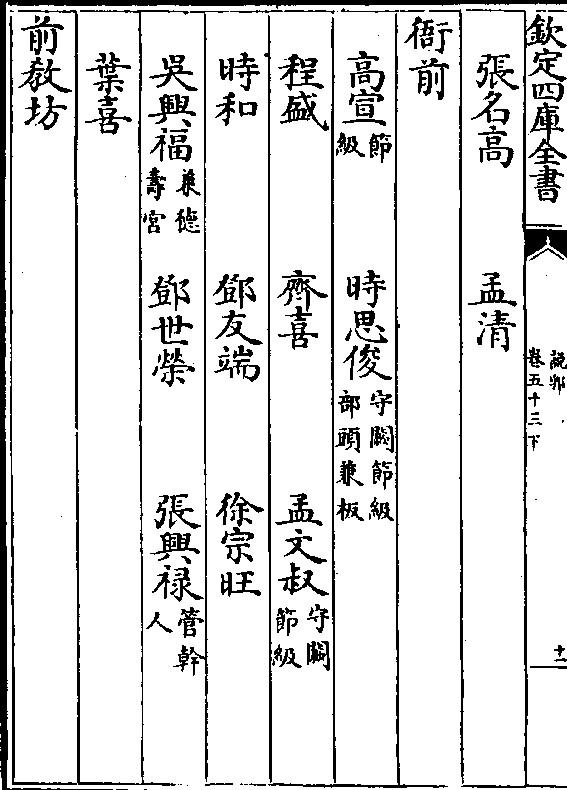 欽定四庫全書
說郛
卷五十三下
十一
張名高 孟清
衙前
高宣 節級 時思俊 守闕節級部頭兼板
程盛 齊喜 孟文叔 守闕節級
時和 鄧友端 徐宗旺
吳興福 兼德壽宮 鄧世榮 張興禄 管幹人
葉喜
前教坊